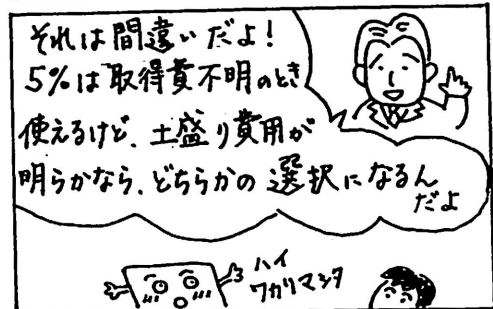 それは間違いだよ!
5%は取得費不明のとき
使えるけど、土盛り費用が
明らかなら、どちらかの選択になるん
だよ
ハイ
ワカリマシタ